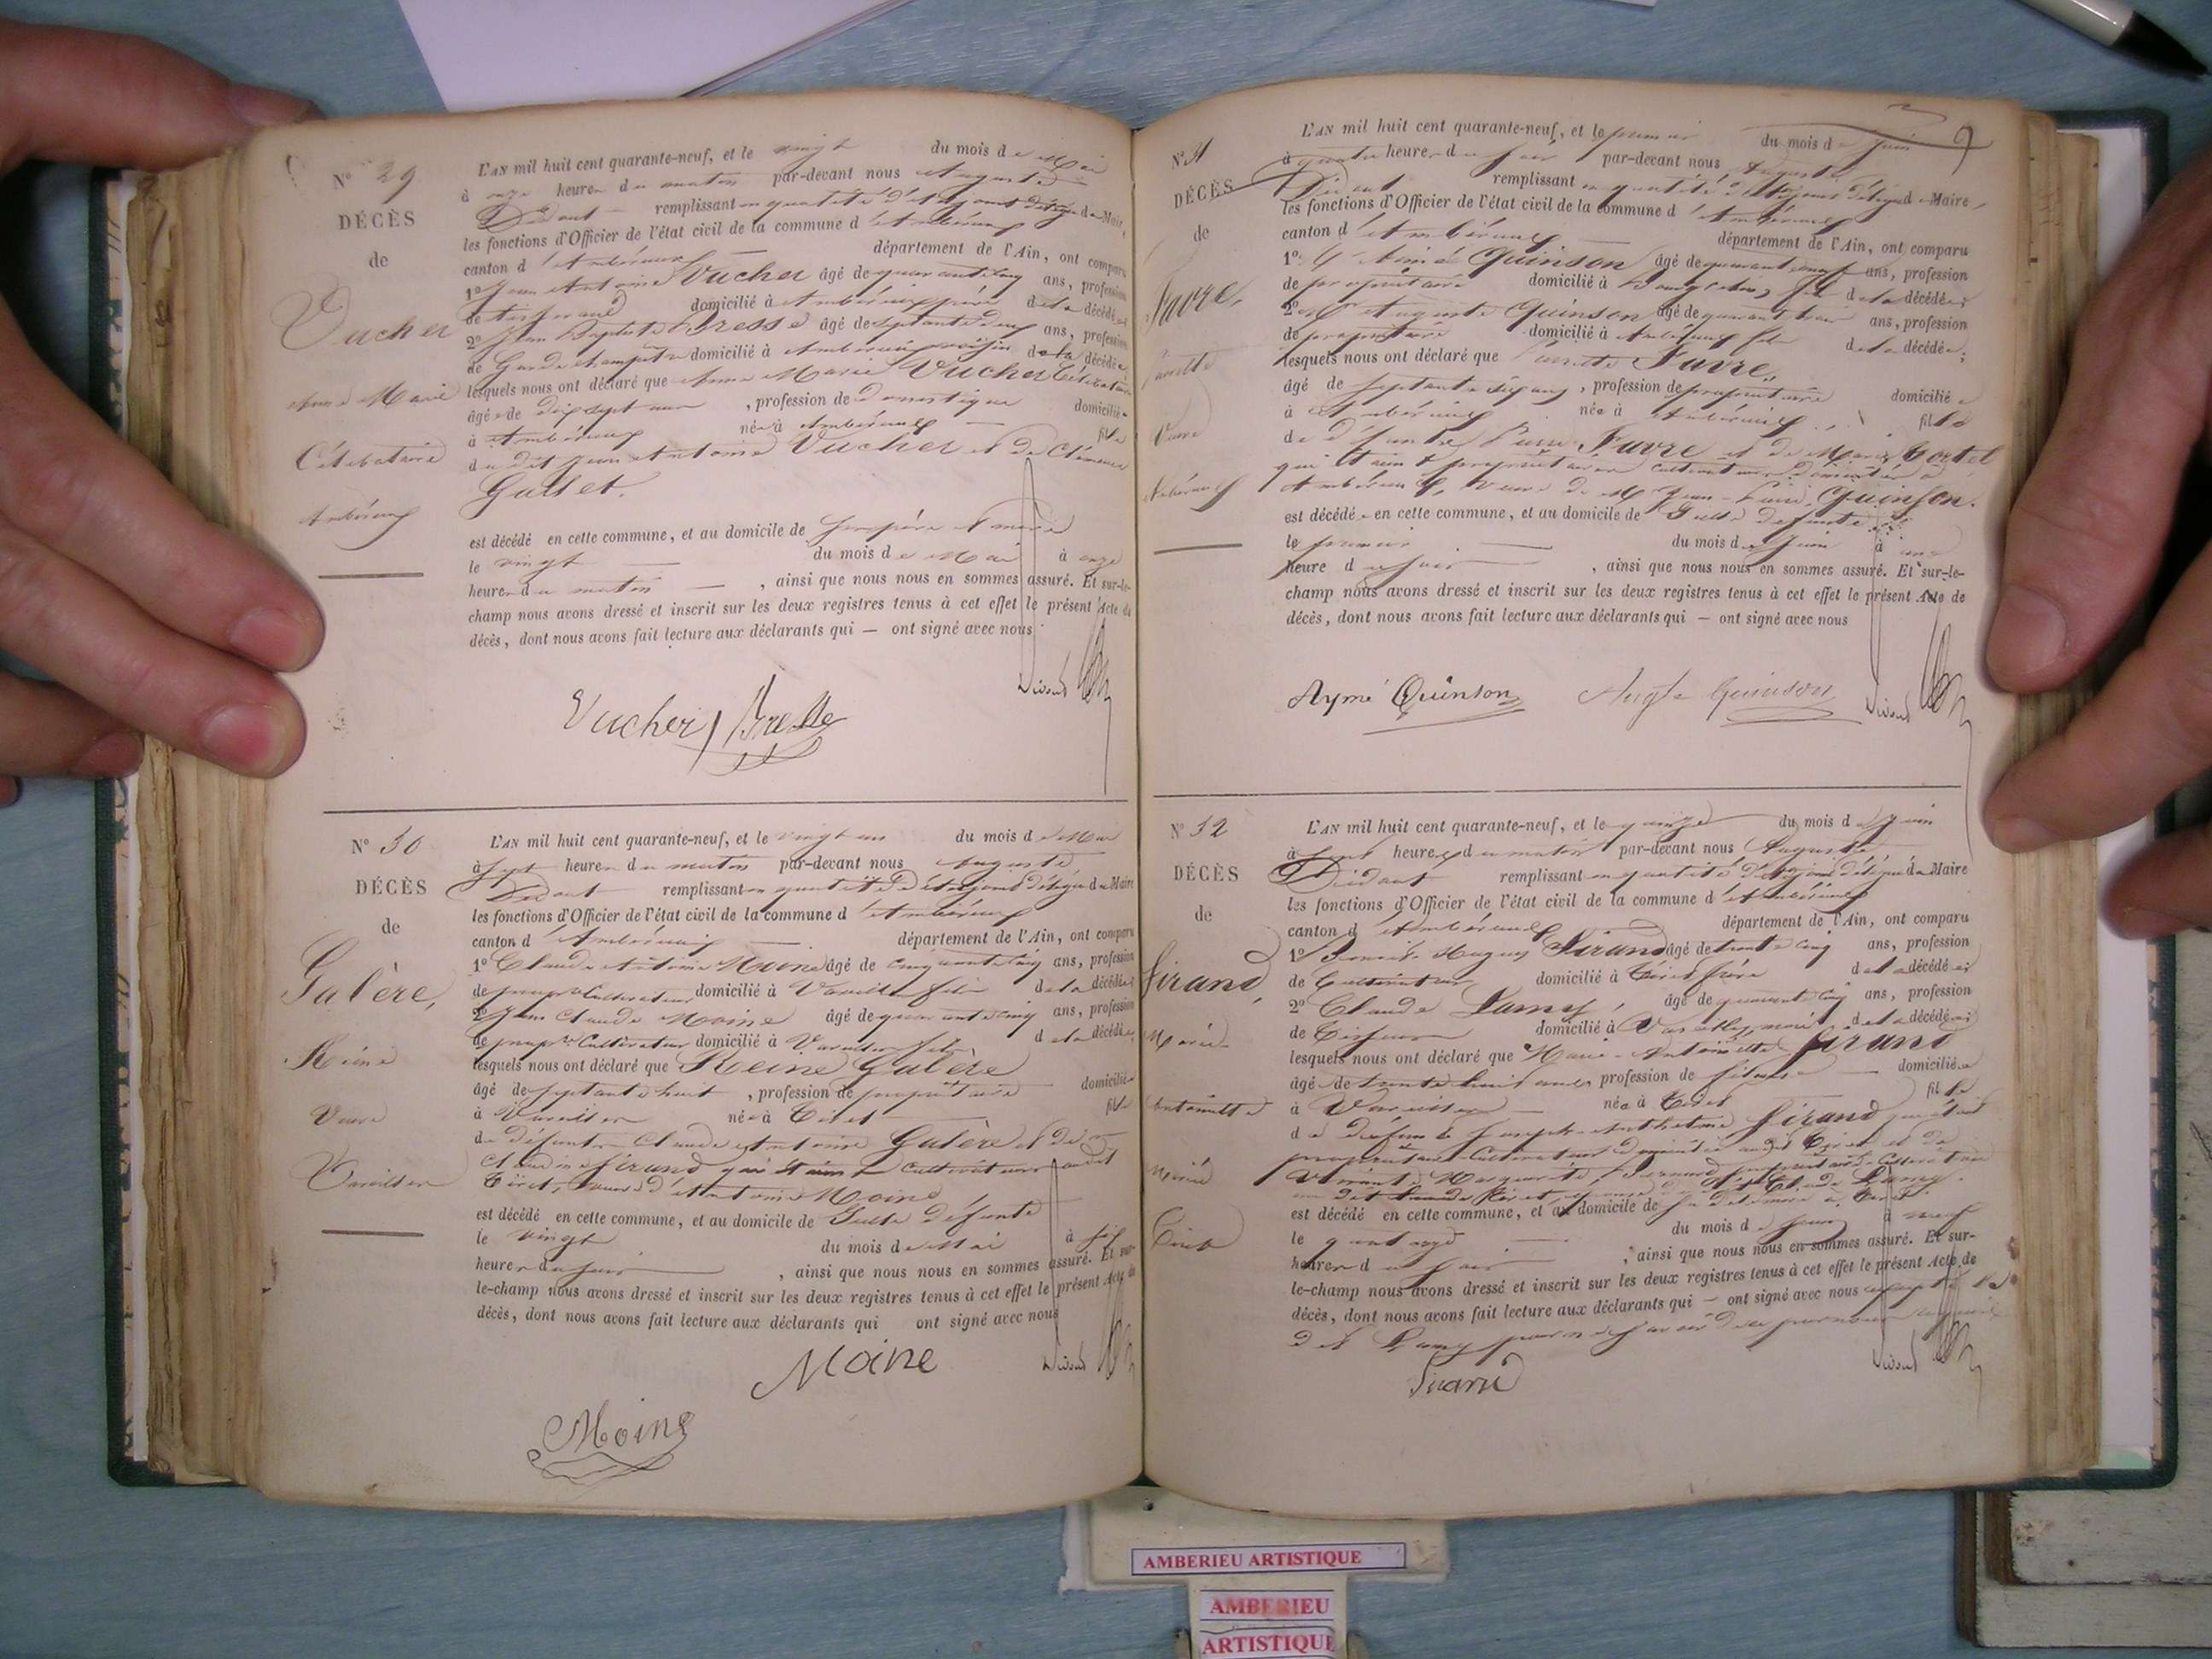 N° 29
DÉCÈS
de
Vucher
Anne Marie
Célibataire
Ambérieux
L'AN mil huit cent quarante-neuf, et le vingt du mois de Mai
à onze heures du matin par-devant nous Auguste
Didout remplissant en qualité d' délégué du Maire,
les fonctions d'Officier de l'état civil de la commune d'Ambérieux
canton d'Ambérieux département de l'Ain, ont comparu
1° Jean Antoine Vucher âgé de quarante cinq ans, profession
de tisserand domicilié à Ambérieux père de la décédée
2° Jean Baptiste Bresse âgé de septante deux ans, profession
de Garde champêtre domicilié à Ambérieux voisin de la décédée
lesquels nous ont déclaré que Anne Marie Vucher Célibataire
âgée de dix sept ans, profession de domestique domiciliée
à Ambérieux née à Ambérieux fille
du dit Jean Antoine Vucher et de Clémence
Gullet.
est décédé en cette commune, et au domicile de ses père et mère
le vingt du mois de Mai à onze
heures du matin, ainsi que nous nous en sommes assuré. Et sur-le-
champ nous avons dressé et inscrit sur les deux registres tenus à cet effet le présent Acte de
décès, dont nous avons fait lecture aux déclarants qui — ont signé avec nous
Vucher Bresse Didout
N° 30
DÉCÈS
de
Galère,
Reine
Veuve
Vareilles
L'AN mil huit cent quarante-neuf, et le vingt un du mois de Mai
à sept heures du matin par-devant nous Auguste
Didout remplissant en qualité d' délégué du Maire
les fonctions d'Officier de l'état civil de la commune d'Ambérieux
canton d'Ambérieux département de l'Ain, ont comparu
1° Claude Antoine Moine âgé de cinquante cinq ans, profession
de propre Cultivateur domicilié à Vareilles fils de la décédée
2° Jean Claude Moine âgé de quarante cinq ans, profession
de propre Cultivateur domicilié à Vareilles fils de la décédée
lesquels nous ont déclaré que Reine Galère
âgé de septante huit, profession de propriétaire domiciliée
à Vareilles née à Tiret fille
de défunts Claude Antoine Galère et de
Claudine Sirand qui étaient Cultivateurs audit
Tiret, veuve d'Antoine Moine
est décédé en cette commune, et au domicile de Sulte défunte
le vingt du mois de Mai à six
heures du soir, ainsi que nous nous en sommes assuré. Et sur-
le-champ nous avons dressé et inscrit sur les deux registres tenus à cet effet le présent Acte de
décès, dont nous avons fait lecture aux déclarants qui ont signé avec nous
Moine Didout
Moine
9
N° 31
DÉCÈS
de
Favre,
Pierrette
Veuve
Ambérieux
L'AN mil huit cent quarante-neuf, et le premier du mois de Juin
à quatre heures du soir par-devant nous Auguste
Didout remplissant en qualité d' délégué du Maire,
les fonctions d'Officier de l'état civil de la commune d'Ambérieux
canton d'Ambérieux département de l'Ain, ont comparu
1° Mr Aimé Quinson âgé de quarante neuf ans, profession
de propriétaire domicilié à fils de la décédée;
2° Mr Auguste Quinson âgé de quarante ans, profession
de propriétaire domicilié à Ambérieux fils de la décédée;
lesquels nous ont déclaré que Pierrette Favre,
âgé de septante six ans, profession de propriétaire domiciliée
à Ambérieux née à Ambérieux fille
de défunts Pierre Favre et de Marie Cortel
qui étaient propriétaires cultivateurs domiciliés à
Ambérieux, veuve de Mr Jean-Louis Quinson.
est décédé en cette commune, et au domicile de Sulte défunte
le premier du mois de Juin à une
heure du soir, ainsi que nous nous en sommes assuré. Et sur-le-
champ nous avons dressé et inscrit sur les deux registres tenus à cet effet le présent Acte de
décès, dont nous avons fait lecture aux déclarants qui — ont signé avec nous
Aymé Quinson Augte Quinson Didout
N° 32
DÉCÈS
de
Sirand,
Marie
Antoinette
Mariée
Tiret
L'AN mil huit cent quarante-neuf, et le quinze du mois de Juin
à sept heures du matin par-devant nous Auguste
Didout remplissant en qualité d' délégué du Maire
les fonctions d'Officier de l'état civil de la commune d'Ambérieux
canton d'Ambérieux département de l'Ain, ont comparu
1° Hugues Sirand âgé de trente cinq ans, profession
de Cultivateur domicilié à Tiret frère de la décédée
2° Claude Lamy, âgé de quarante cinq ans, profession
de domicilié à Vareilles, mari de la décédée
lesquels nous ont déclaré que Marie-Antoinette Sirand
âgé de trente huit ans profession de domiciliée
à Vareilles née à Tiret fille
de défunt Joseph-Anthelme Sirand qui était
propriétaire-Cultivateur domicilié audit Tiret et de
vivante Marguerite Bernard propriétaire-Cultivatrice
au dit Tiret, épouse du dit Claude Lamy.
est décédé en cette commune, et au domicile de sa à Tiret
le quatorze du mois de Juin à neuf
heures du soir, ainsi que nous nous en sommes assuré. Et sur-
le-champ nous avons dressé et inscrit sur les deux registres tenus à cet effet le présent Acte de
décès, dont nous avons fait lecture aux déclarants qui — ont signé avec nous excepté le
dit Lamy pour ne savoir
Sirand Didout
AMBERIEU ARTISTIQUE
AMBERIEU
ARTISTIQUE